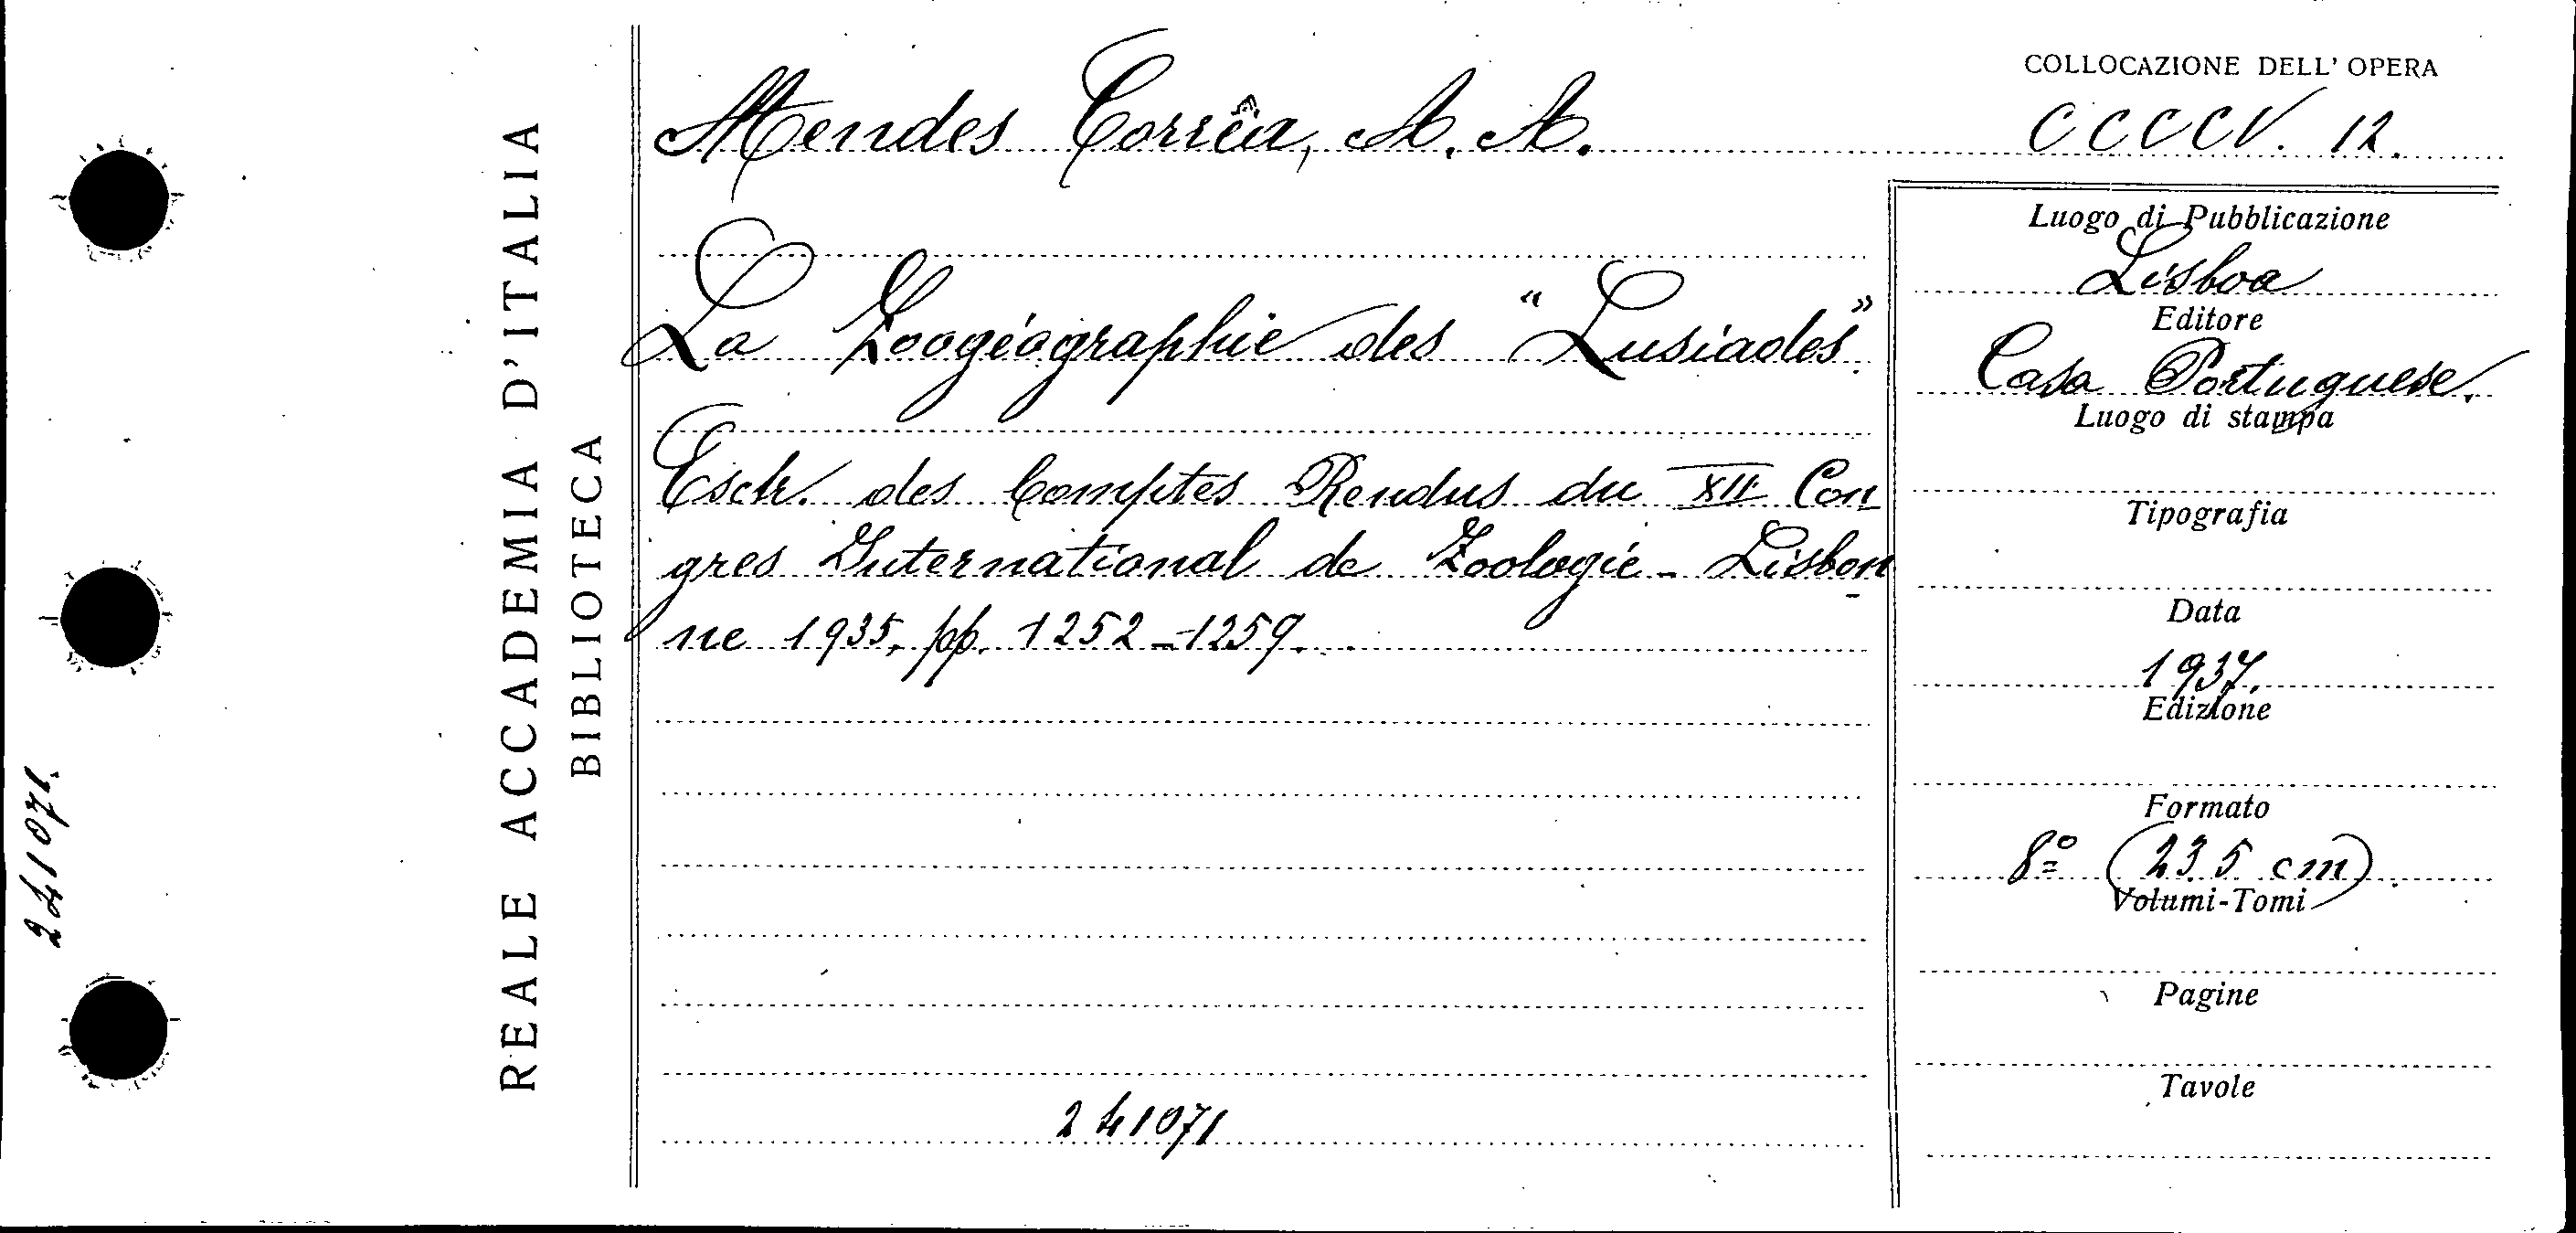 COLLOCAZIONE DELL' OPERA
Mendes Corrêa, A. A.
CCCCV. 12.
La Zoogéographie des "Lusiades".
Esch. des Comptes Rendus du XII Con
gres International de Zoologie - Lisbon-
ne 1935, pp. 1252-1259.
241071
Luogo di Pubblicazione
Lisboa
Editore
Casa Portuguese.
Luogo di stampa
Tipografia
Data
1937.
Edizione
Formato
8º (23.5 cm)
Volumi-Tomi
Pagine
Tavole
REALE ACCADEMIA D'ITALIA
BIBLIOTECA
241071.